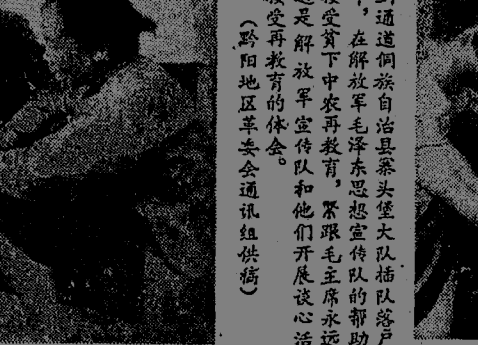 到通道侗族自治县寨头堡大队插队落户
，在解放军毛泽东思想宣传队的帮助
接受贫下中农再教育，紧跟毛主席永远
这是解放军宣传队和他们开展谈心活
接受再教育的体会。
（黔阳地区革委会通讯组供稿）